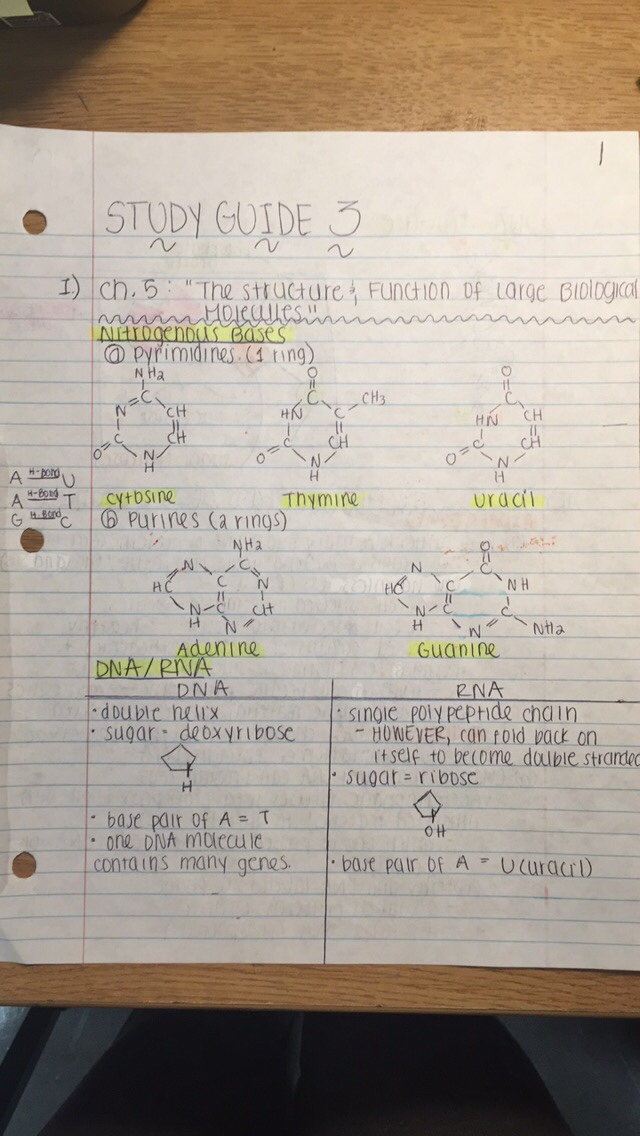 1
STUDY GUIDE 3
I.) Ch. 5: "The Structure & Function of Large Biological
Molecules"
Nitrogenous Bases
ⓐ Pyrimidines. (1 ring)
NH2
C
N CH
C CH
O N
H
O
C
HN C CH3
C CH
O N
H
O
C
HN CH
C CH
O N
H
A H-Bond U
A H-Bond T
G H-Bond C
Cytosine Thymine Uracil
ⓑ Purines (2 rings)
NH2
N C
HC C N
N C CH
H N
O
N C
HC C NH
N C C
H N NH2
Adenine Guanine
DNA/RNA
DNA
• double helix
• sugar = deoxyribose
H
• base pair of A = T
• one DNA molecule
contains many genes.
RNA
• single polypeptide chain
- HOWEVER, can fold back on
itself to become double stranded
• sugar = ribose
OH
• base pair of A = U (uracil)